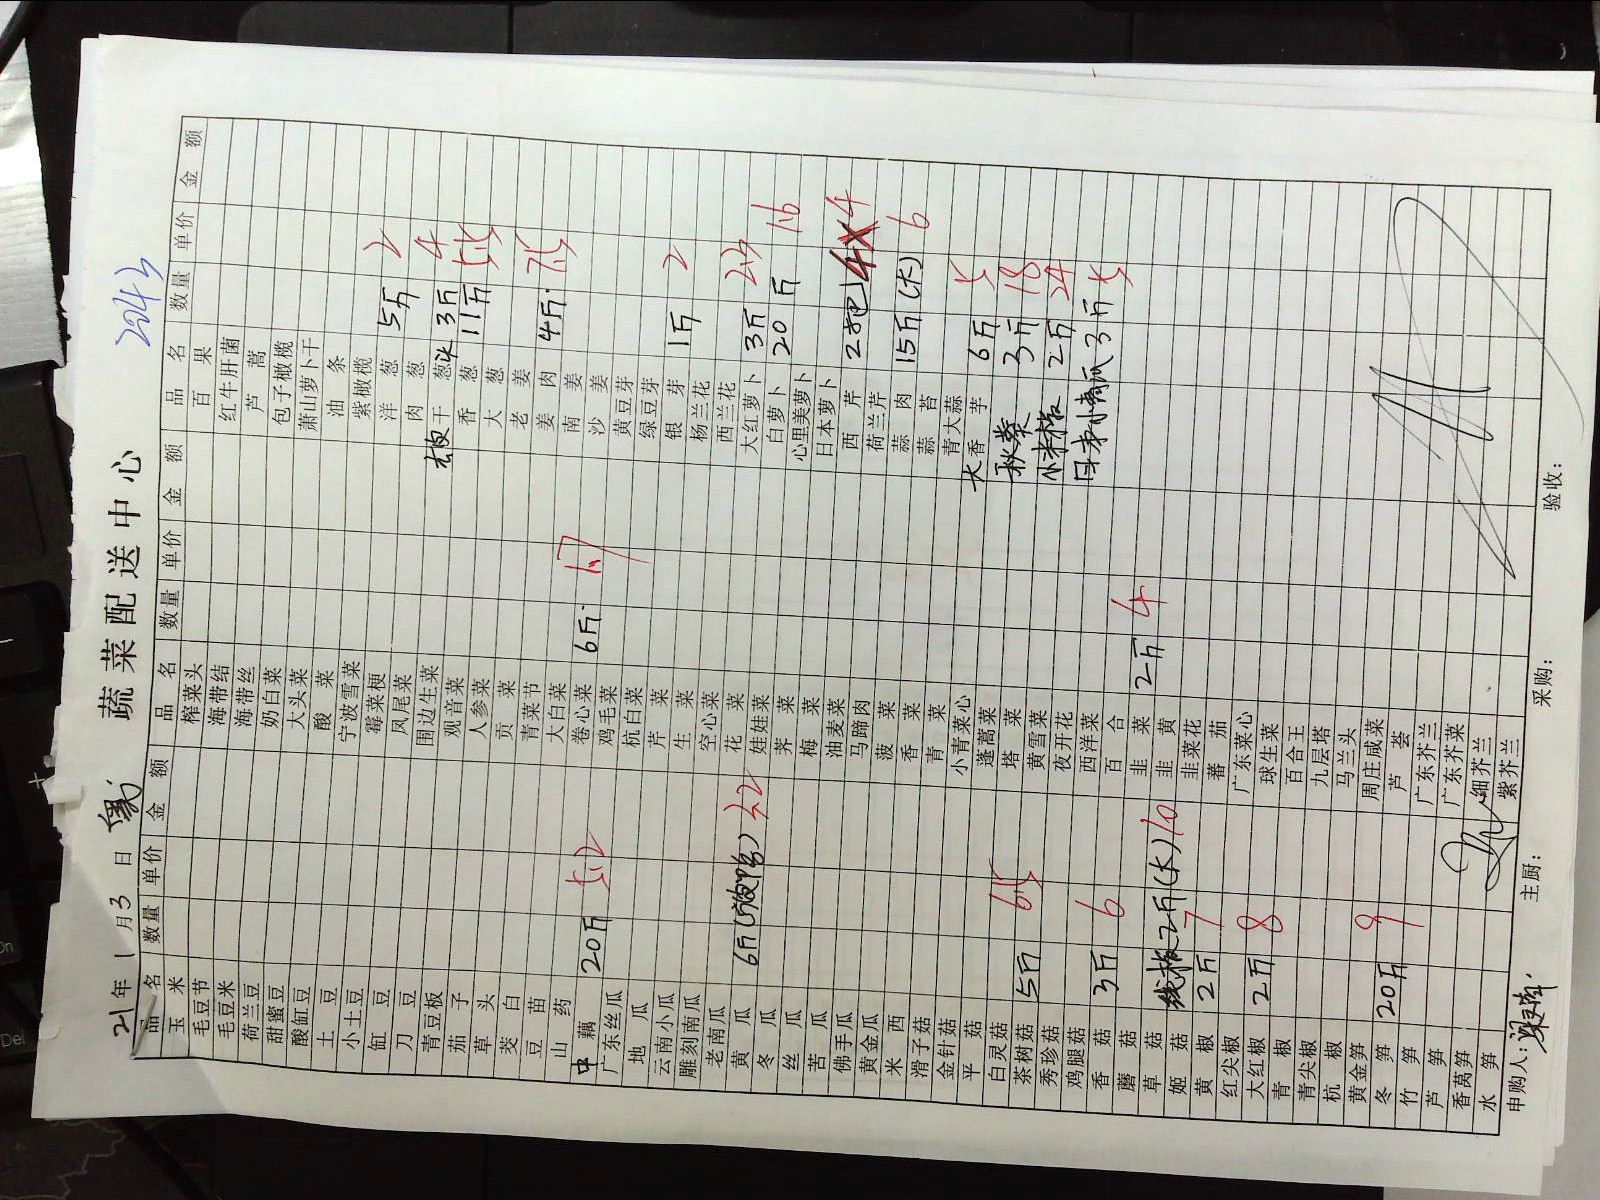 蔬菜配送中心
21年1月3日
品名 数量 单价 金额 品名 数量 单价 金额 品名 数量 单价 金额
玉米
毛豆节
毛豆米
荷兰豆
甜蜜豆
酸缸豆
土豆
小土豆
缸豆
刀豆
青豆板
茄子
草头
茭白
豆苗
山药
中藕 20斤 5.2
广东丝瓜
地瓜
云南小瓜
雕刻南瓜
老南瓜
黄瓜 6斤 3.2
冬瓜
丝瓜
苦瓜
佛手瓜
黄金瓜
米西
滑子菇
金针菇
平菇
白灵菇
茶树菇 5斤 6.5
秀珍菇
鸡腿菇
香菇 3斤 6
蘑菇
草菇
姬菇 线椒2斤(水) 10
黄椒 2斤 7
红尖椒
大红椒 2斤 8
青椒
青尖椒
杭椒
黄金笋
冬笋 20斤 9
竹笋
芦笋
香莴笋
水笋
榨菜头
海带结
海带丝
奶白菜
大头菜
酸菜
宁波雪菜
霉菜梗
凤尾菜
围边生菜
观音菜
人参菜
贡菜
青菜节
大白菜
卷心菜 6斤 1.7
鸡毛菜
杭白菜
芹菜
生菜
空心菜
花菜
娃娃菜
荠菜
梅菜
油麦菜
马蹄肉
菠菜
香菜
青菜
小青菜心
蓬蒿菜
塔菜
黄雪菜
夜开花
西洋菜
百合
韭菜 2斤 4
韭黄
韭菜花
蕃茄
广东菜心
球生菜
百合王
九层塔
马兰头
周庄咸菜
芦荟
广东芥兰
广东芥菜
细芥兰
紫芥兰
百果
红牛肝菌
芦蒿
包子橄榄
萧山萝卜干
油条
紫橄榄
洋葱 5斤 2
肉葱
去皮干葱头 3斤 4
香葱 11斤 5.5
大葱
老姜
姜肉 4斤 7.5
南姜
沙姜
黄豆芽
绿豆芽
银芽 1斤 2
杨兰花
西兰花
大红萝卜 3斤 2.3
白萝卜 20斤 1.6
心里美萝卜
日本萝卜
西芹 2把 4X4
荷兰芹
蒜肉 15斤(大) 6
蒜苔
青大蒜
大香芋 6斤 5
秋葵 3斤 18
小米椒 2斤 24
日本小青瓜 3斤 5
申购人： 主厨： 采购： 验收：